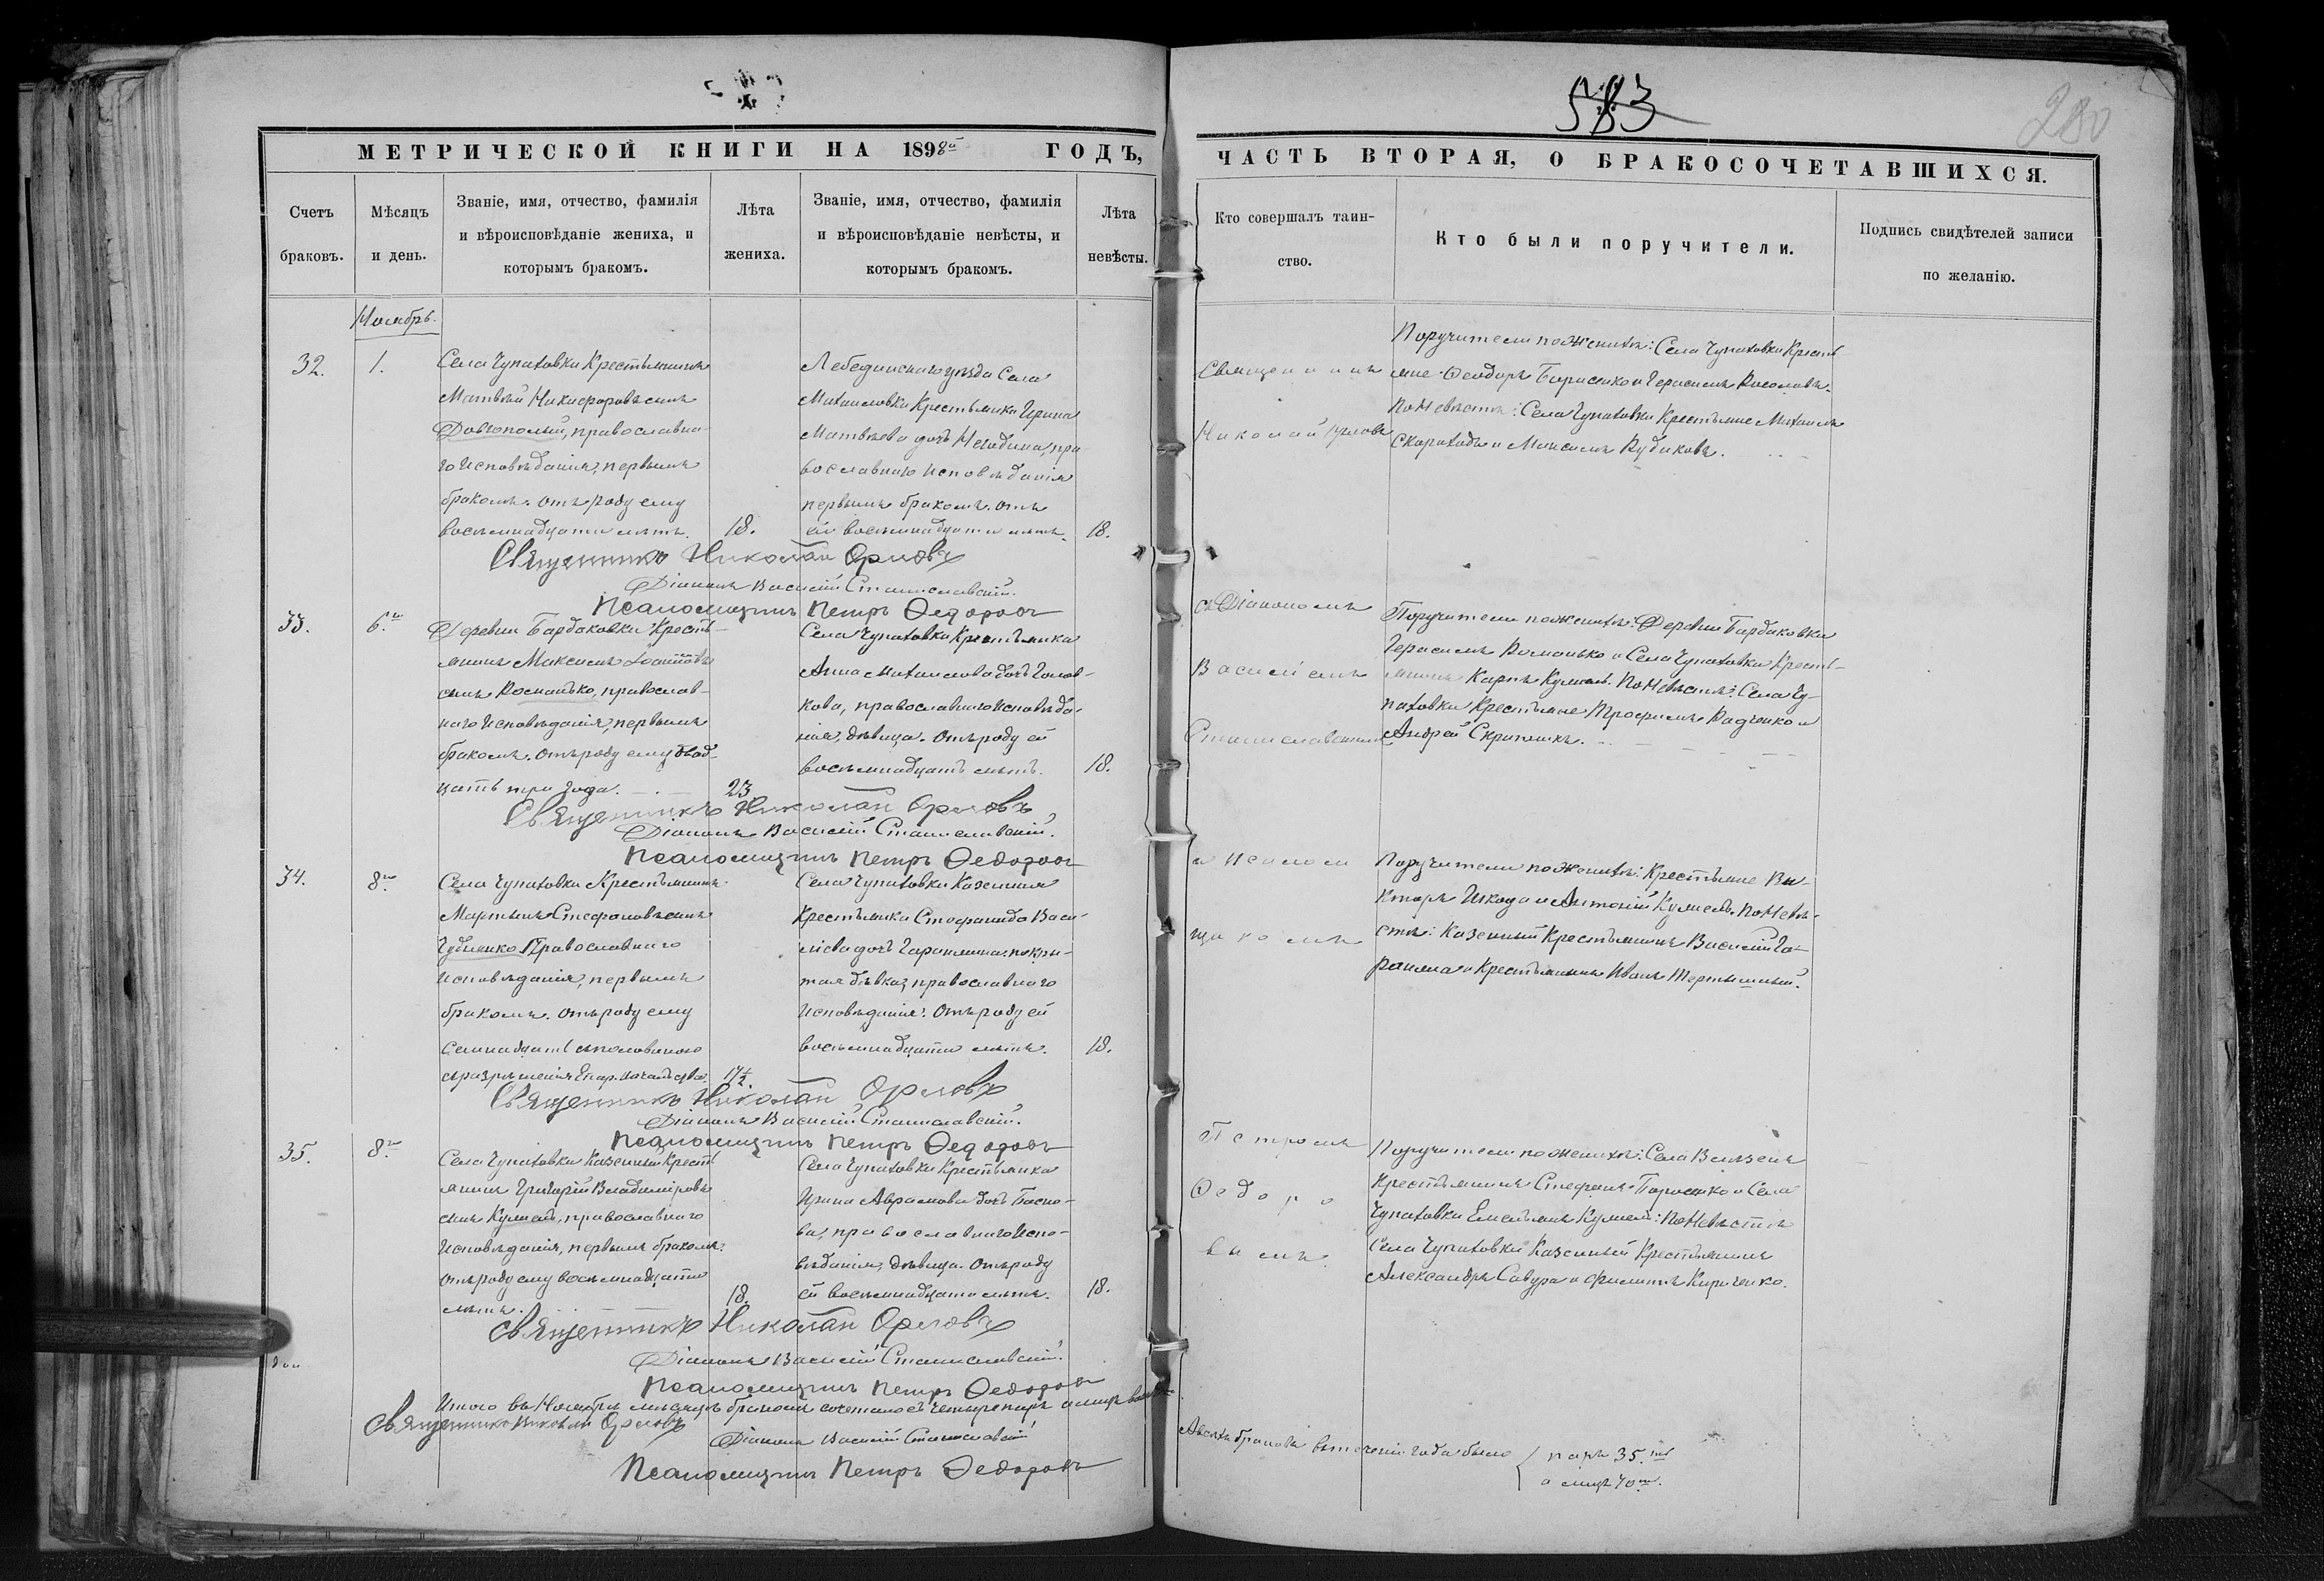 583
280
МЕТРИЧЕСКОЙ КНИГИ НА 1898й ГОДЪ,
ЧАСТЬ ВТОРАЯ, О БРАКОСОЧЕТАВШИХСЯ.
Счетъ браковъ.
Мѣсяцъ и день.
Званіе, имя, отчество, фамилія
и вѣроисповѣданіе жениха, и
которымъ бракомъ.
Лѣта
жениха.
Званіе, имя, отчество, фамилія
и вѣроисповѣданіе невѣсты, и
которымъ бракомъ.
Лѣта
невѣсты.
Кто совершалъ таин-
ство.
Кто были поручители.
Подпись свидѣтелей записи
по желанію.
Ноябрь.
32.
1.
Села Чупаховки Крестьянинъ
Матвѣй Никифоровъ сынъ
Довгополый, православна-
го исповѣданія, первымъ
бракомъ. Отъ роду ему
восемнадцати лѣтъ.
18.
Лебединскаго уѣзда Села
Михаиловки Крестьянка Ирина
Матвѣева дочь пра
вославнаго исповѣданія
первымъ бракомъ. Отъ
ей восемнадцати лѣтъ.
18.
Священникъ Николай Орловъ
Діаконъ Василій Станиславскій.
Псаломщикъ Петръ Федоровъ
33.
6.го
Деревни Бардаковки Кресть-
янинъ Максимъ Іоанновъ
сынъ Романько, православ-
наго исповѣданія, первымъ
бракомъ. Отъ роду ему двад-
цать три года.
23
Села Чупаховки Крестьянка
Анна Михаилова дочь Голов-
кова, православнаго исповѣда-
нія, дѣвица. Отъ роду ей
восемнадцать лѣтъ.
18.
Священникъ Николай Орловъ
Діаконъ Василій Станиславскій.
Псаломщикъ Петръ Федоровъ
34.
8.го
Села Чупаховки Крестьянинъ
Мартынъ Стефановъ сынъ
Православнаго
исповѣданія, первымъ
бракомъ. Отъ роду ему
семнадцать съ половиною
съ разрѣшенія Епар. начальства.
17½.
Села Чупаховки Казенная
Крестьянка Стефанида Васи-
ліева дочь покры-
тая дѣвка, православнаго
исповѣданія. Отъ роду ей
восемнадцати лѣтъ.
18.
Священникъ Николай Орловъ
Діаконъ Василій Станиславскій.
Псаломщикъ Петръ Федоровъ
35.
8.го
Села Чупаховки Казенный Кресть
янинъ Григорій Владиміровъ
сынъ Кумель, православнаго
исповѣданія, первымъ бракомъ.
Отъ роду ему восемнадцати
лѣтъ.
18.
Села Чупаховки Крестьянка
Ирина Аврамова дочь Басно-
ва, православнаго испо-
вѣданія, дѣвица. Отъ роду
ей восемнадцати лѣтъ.
18.
Священникъ Николай Орловъ
Діаконъ Василій Станиславскій.
Псаломщикъ Петръ Федоровъ
Итого въ Ноябрѣ мѣсяцѣ бракомъ сочеталось четыре пары а лицъ
Священникъ Николай Орловъ
Діаконъ Василій Станиславскій
Псаломщикъ Петръ Федоровъ
Священникъ
Николай Орловъ
съ Діакономъ
Василіемъ
Станиславскимъ
и псалом
щикомъ
Петромъ
Федоро
вымъ.
Поручители по женихѣ: Села Чупаховки Кресть
яне Ѳеодоръ Борисенко и Герасимъ
По невѣстѣ: Села Чупаховки Крестьяне Михаилъ
Скороходъ и Максимъ Рудаковъ.
Поручители по женихѣ: Деревни Бардаковки
Герасимъ Романько и Села Чупаховки Кресть-
янинъ Карпъ Кумель. По невѣстѣ: Села Чу-
паховки Крестьяне Трофимъ Радченко и
Андрей Скрипникъ.
Поручители по женихѣ: Крестьяне Ви-
кторъ Шкода и Антоній Кумель. По невѣ-
стѣ: Казенный Крестьянинъ Василій Га-
и Крестьянинъ Иванъ Тертышный.
Поручители по женихѣ: Села
Крестьянинъ Стефанъ и Села
Чупаховки Емельянъ Кумель: По невѣстѣ
Села Чупаховки Казенный Крестьянинъ
Александръ Савура и Филиппъ Кириченко.
А всѣхъ браковъ въ теченіи года было паръ 35.ть
а лицъ 70.ть.